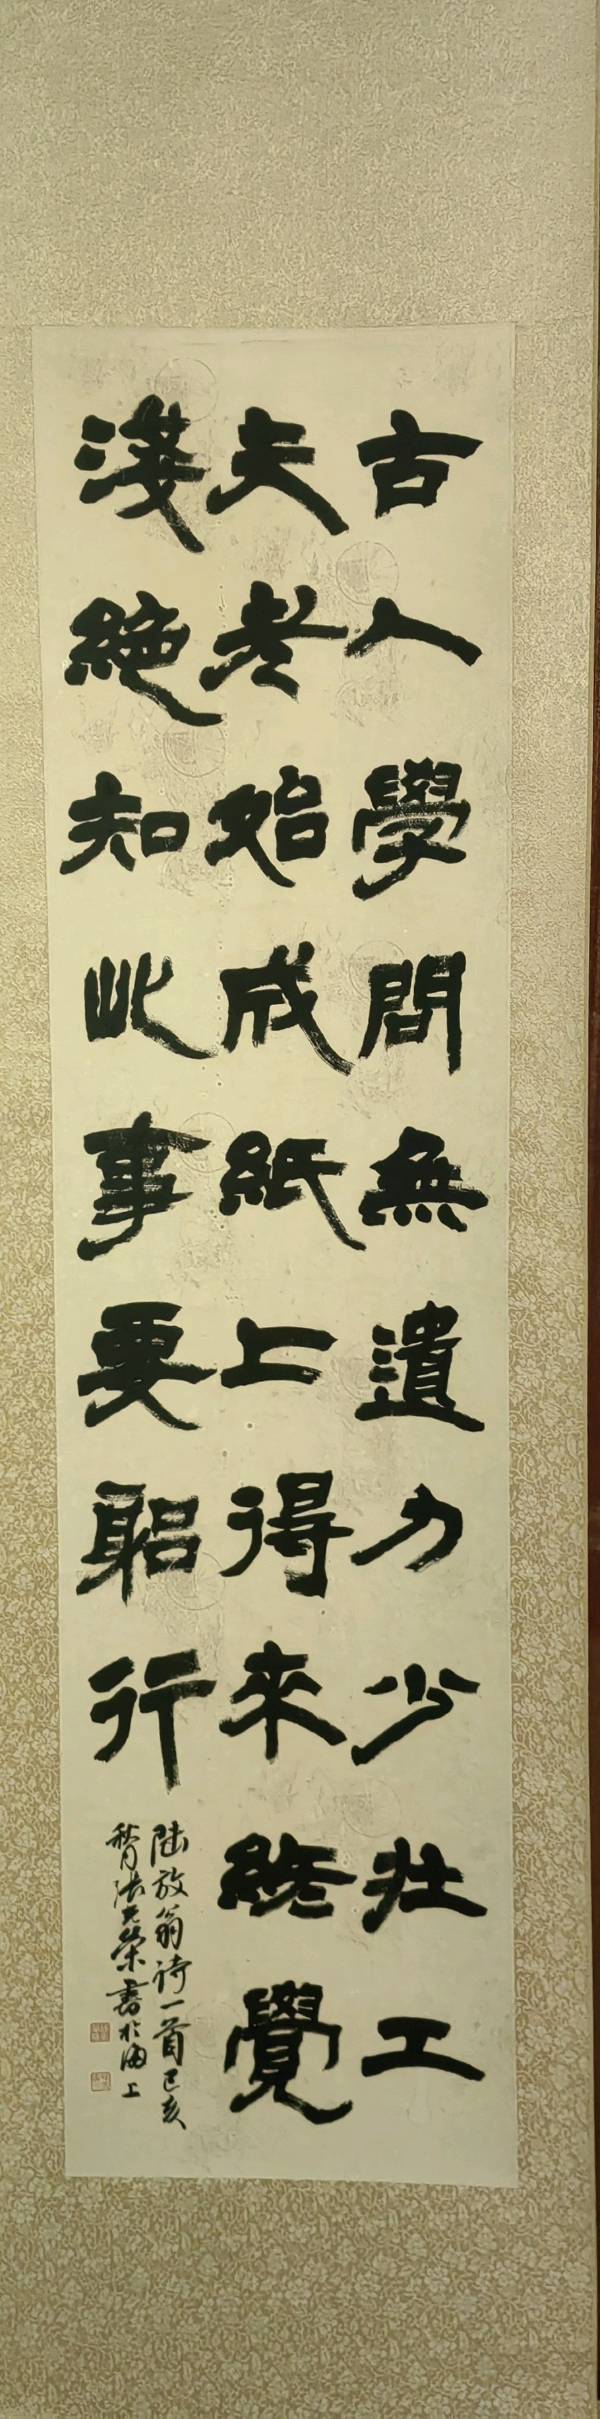 古人學問無遺力少壯工
夫老始成紙上得來終覺
淺絶知此事要躳行
陆放翁诗一首己亥
秋月张荣書於海上